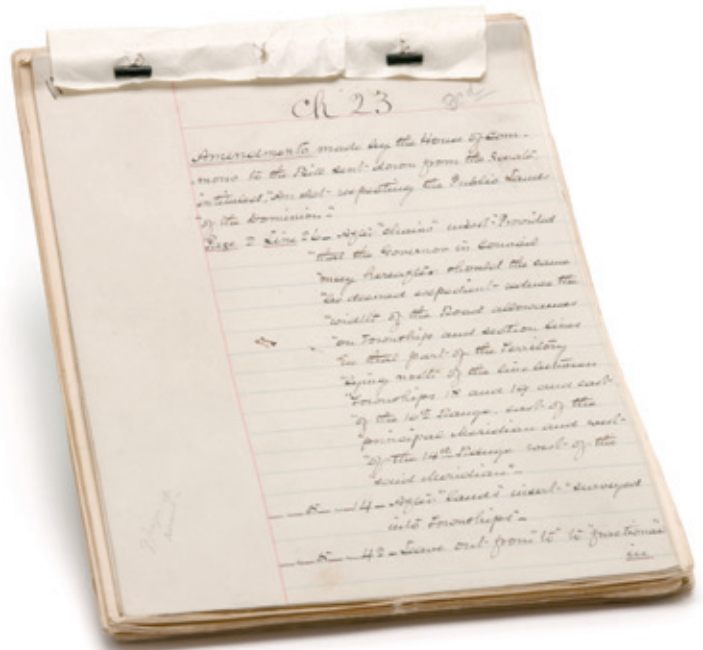 ch 23
3rd
Amendments made by the House of Com-
mons to the Bill sent down from the Senate
intituled, "An Act respecting the Public Lands
"of the Dominion."
Page 2 Line 26 – After "chains" insert "Provided
"that the Governor in Council
"may hereafter should the same
"be deemed expedient reduce the
"width of the Road allowances
"on Townships and section lines
"in that part of the Territory
"lying north of the line between
"Townships 18 and 19 and east
"of the Range east of the
"principal Meridian and west
"of the 14th Range west of the
"said Meridian".
– 5 – 14 – After "Lands" insert "surveyed
into Townships" –
– 5 – 42 – Leave out from to "fractional